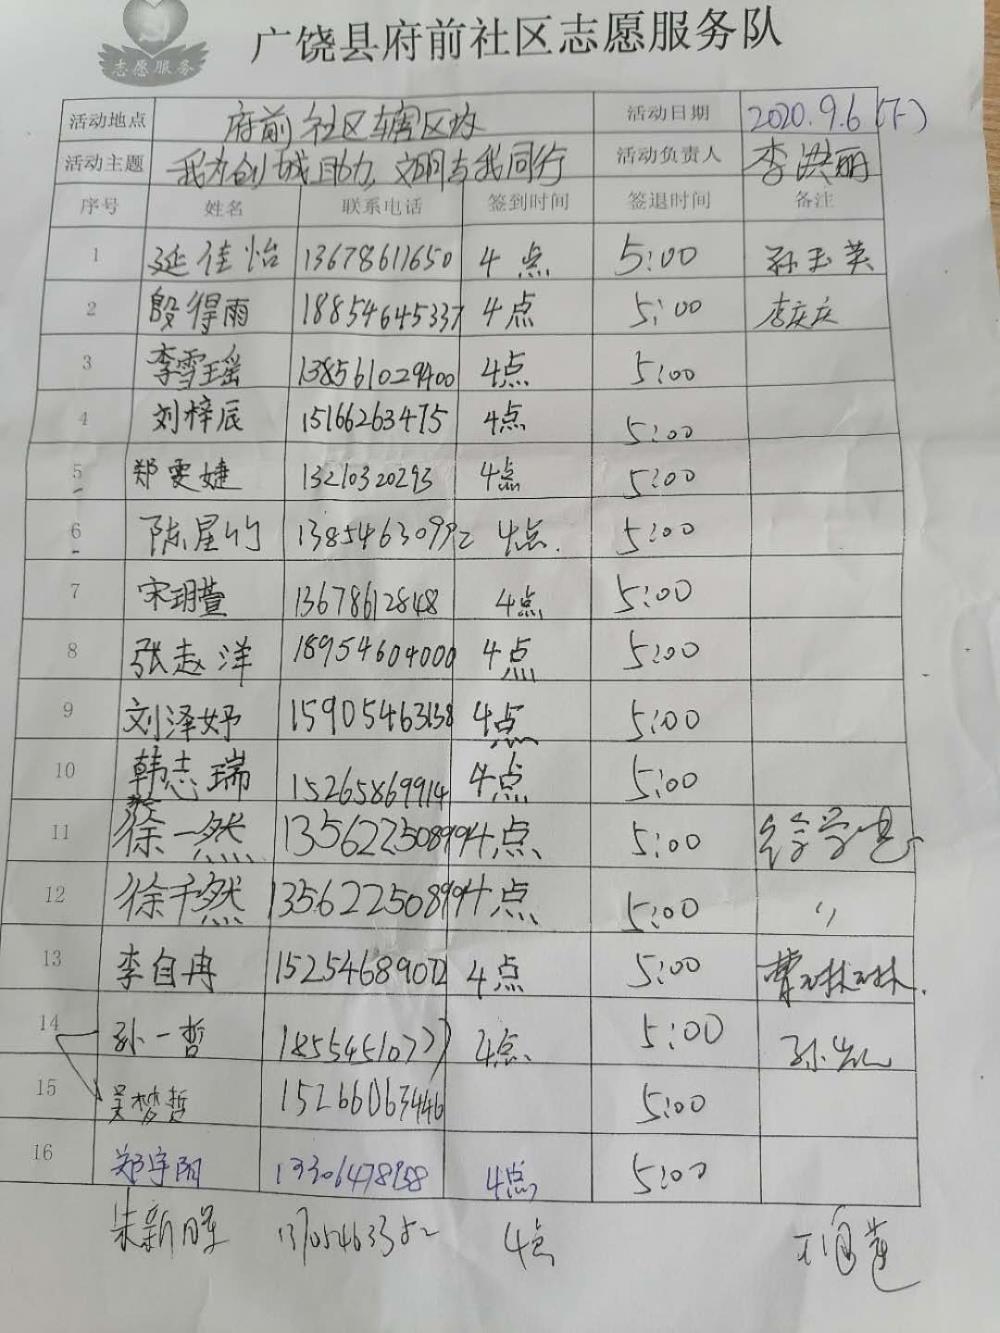 志愿服务
广饶县府前社区志愿服务队
活动地点 府前社区辖区内 活动日期 2020.9.6(下)
活动主题 我为创城助力,文明与我同行 活动负责人 李洪丽
序号 姓名 联系电话 签到时间 签退时间 备注
1 延佳怡 13678611650 4点 5:00 孙玉英
2 殷得雨 18854645337 4点 5:00 李庆庆
3 李雪瑶 138561029400 4点 5:00
4 刘梓辰 15166263475 4点 5:00
5 郑雯婕 13210320293 4点 5:00
6 陈星竹 13854630992 4点. 5:00
7 宋玥萱 13678612848 4点 5:00
8 张赵洋 18954604000 4点 5:00
9 刘泽妤 15905463138 4点 5:00
10 韩志瑞 15265869914 4点 5:00
11 徐一然 13562250899 4点 5:00
12 徐千然 13562250899 4点 5:00 〃
13 李自冉 15254689072 4点 5:00 曹琳琳.
14 孙一哲 18554510777 4点 5:00
15 吴梦哲 15266063446 5:00
16 郑宇阳 4点 5:00
朱新 4点